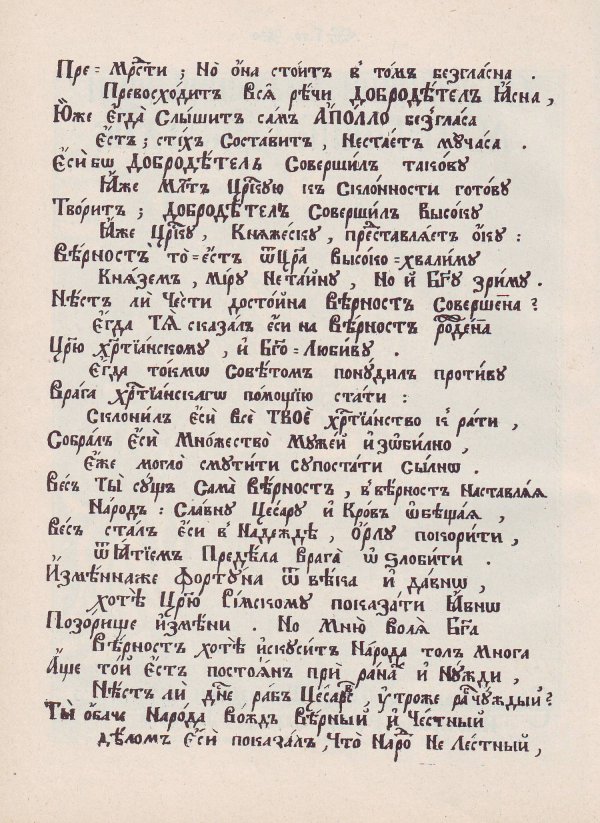 Пре=Мрⷭ҇ти ; Но О҆на̀ стои́тъ в̾ то́мъ безгла́сна .
Превосхо́дитъ Всѧ̑ рѣ́чи ДОБРОДѢ́ТЕЛЪ Ꙗ҆́сна ,
Ю҆́же Е҆гда̀ Слы́шитъ са́мъ А҆ПО́ЛЛО без̾гла́са
Е҆́стъ ; сті́хъ Соста́витъ , Неста́етъ мꙋ ча́са .
Е҆сѝ бѡ ДОБРОДѢ́ТЕЛЬ Соверши́лъ тако́вꙋ
Ꙗ҆́же Млⷭ҇тъ Црⷭ҇кꙋю къ Скло́нности гото́вꙋ
Твори́тъ ; ДОБРОДѢ́ТЕЛЪ Соверши́лъ Высо́кꙋ
Ꙗ҆́же Црⷭ҇кꙋ , Кнѧ́жескꙋ , прⷣеставлѧ́етъ О҆́кꙋ :
ВѢ́РНОСТЪ то̀=е҆́стъ Ѿ Цр҃ѧ̀ Высоко=хвали́мꙋ
Кнѧ́земъ , мі́рꙋ Не та́йнꙋ , Но и҆ Бг҃ꙋ зри́мꙋ .
Нѣ́стъ лѝ Че́сти досто́йна ВѢ́РНОСТЪ Соверше́нна ?
Е҆гда̀ ТѦ̀ сказа́лъ е҆сѝ на ВѢ́РНОСТЪ рожде́нна
Цр҃ю̀ хрⷭ҇тїа́нскомꙋ , и҆ Бг҃о=Люби́вꙋ .
Е҆гда̀ то́кмѡ Совѣ́томъ понꙋ́дилъ проти́вꙋ
Врага̀ хрⷭ҇тїа́нскагѡ по́мощїю ста́ти :
Склони́лъ Е҆сѝ всѐ ТВОѐ хрⷭ҇тїа́нство к̾ ра́ти ,
Собра́лъ Е҆сѝ Мно́жество Мꙋже́й и҆зѡби́лно ,
Е҆́же могло̀ смꙋти́ти сꙋпоста́ти сы́лнѡ .
Ве́сь Ты̀ сꙋ́щъ Сама̀ ВѢ́РНОСТЪ , в̾ вѣ́рностъ Наставлѧ́ѧ
Наро́дъ : Сла́внꙋ Це́сарꙋ и҆ Кро́въ ѡ҆бѣща́ѧ ,
Ве́сь ста́лъ е҆сѝ в̾ Наде́ждѣ , О҆рлꙋ̀ покори́ти ,
Ѿѧ́тїемъ Преде́ла врага̀ ѡ҆ѕло́бити .
И҆змѣ́нна же Фортꙋ́на ѿ вѣ́ка и҆ да́внѡ ,
хотѣ̀ Цр҃ю̀ Ри́мскомꙋ показа́ти Ꙗ҆́внѡ
Позо́рище и҆змѣ́ни . Но Мню̀ во́лѧ Бг҃а
Вѣ́рностъ хотѣ̀ и҆скꙋси́тъ Наро́да то́лъ Мно́га
А҆́ще то́й Е҆́стъ постоѧ́нъ при́ ра́нахъ и҆ Нꙋ́жди ,
Нѣ́стъ ли дне́ ра́бъ Це́сарⷭ҇ , ꙋ҆́тро же ра́бъ чꙋ́ждый ?
Ты̀ ѻ҆ба́че Наро́да Во́ждъ Вѣ́рный и҆ Че́стный
дѣ́ломъ Е҆сѝ показа́лъ , Что̀ Наро́дъ Не Ле́стный ,